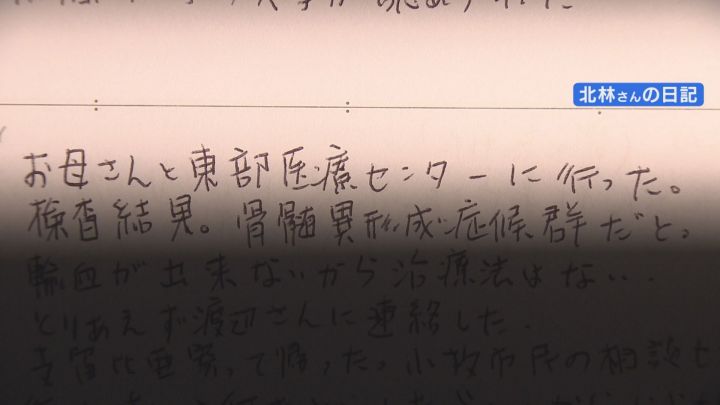 北林さんの日記
お母さんと東部医療センターに行った。
検査結果。骨髄異形成症候群だと。
輸血が出来ないから治療法はない.
とりあえず渡辺さんに連絡した.
って帰った。小牧市民の相談セ